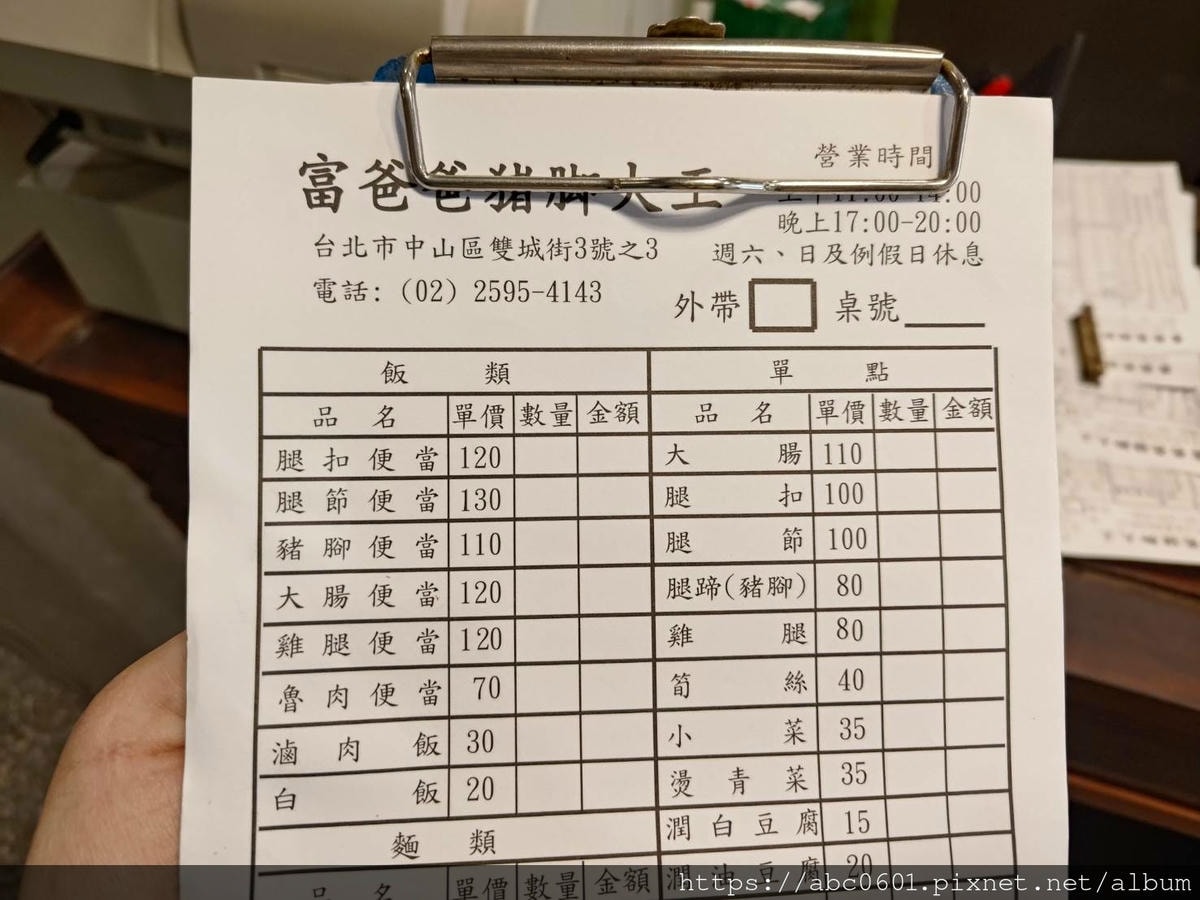 富爸爸豬腳大王
營業時間
上午11:00-14:00
晚上17:00-20:00
台北市中山區雙城街3號之3
週六、日及例假日休息
電話: (02) 2595-4143
外帶 桌號
飯類
品名 單價 數量 金額
腿扣便當 120
腿節便當 130
豬腳便當 110
大腸便當 120
雞腿便當 120
魯肉便當 70
滷肉飯 30
白飯 20
麵類
品名 單價 數量 金額
單點
品名 單價 數量 金額
大腸 110
腿扣 100
腿節 100
腿蹄(豬腳) 80
雞腿 80
筍絲 40
小菜 35
燙青菜 35
潤白豆腐 15
潤油豆腐 20
https://abc0601.pixnet.net/album